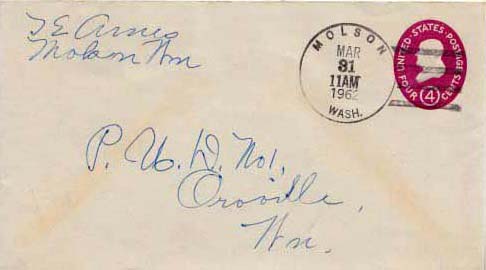 T E Arnes
Molson Wn
MOLSON
MAR
31
11AM
1962
WASH.
UNITED·STATES·POSTAGE
FOUR 4 CENTS
P. U. D. No 1,
Oroville,
Wn.